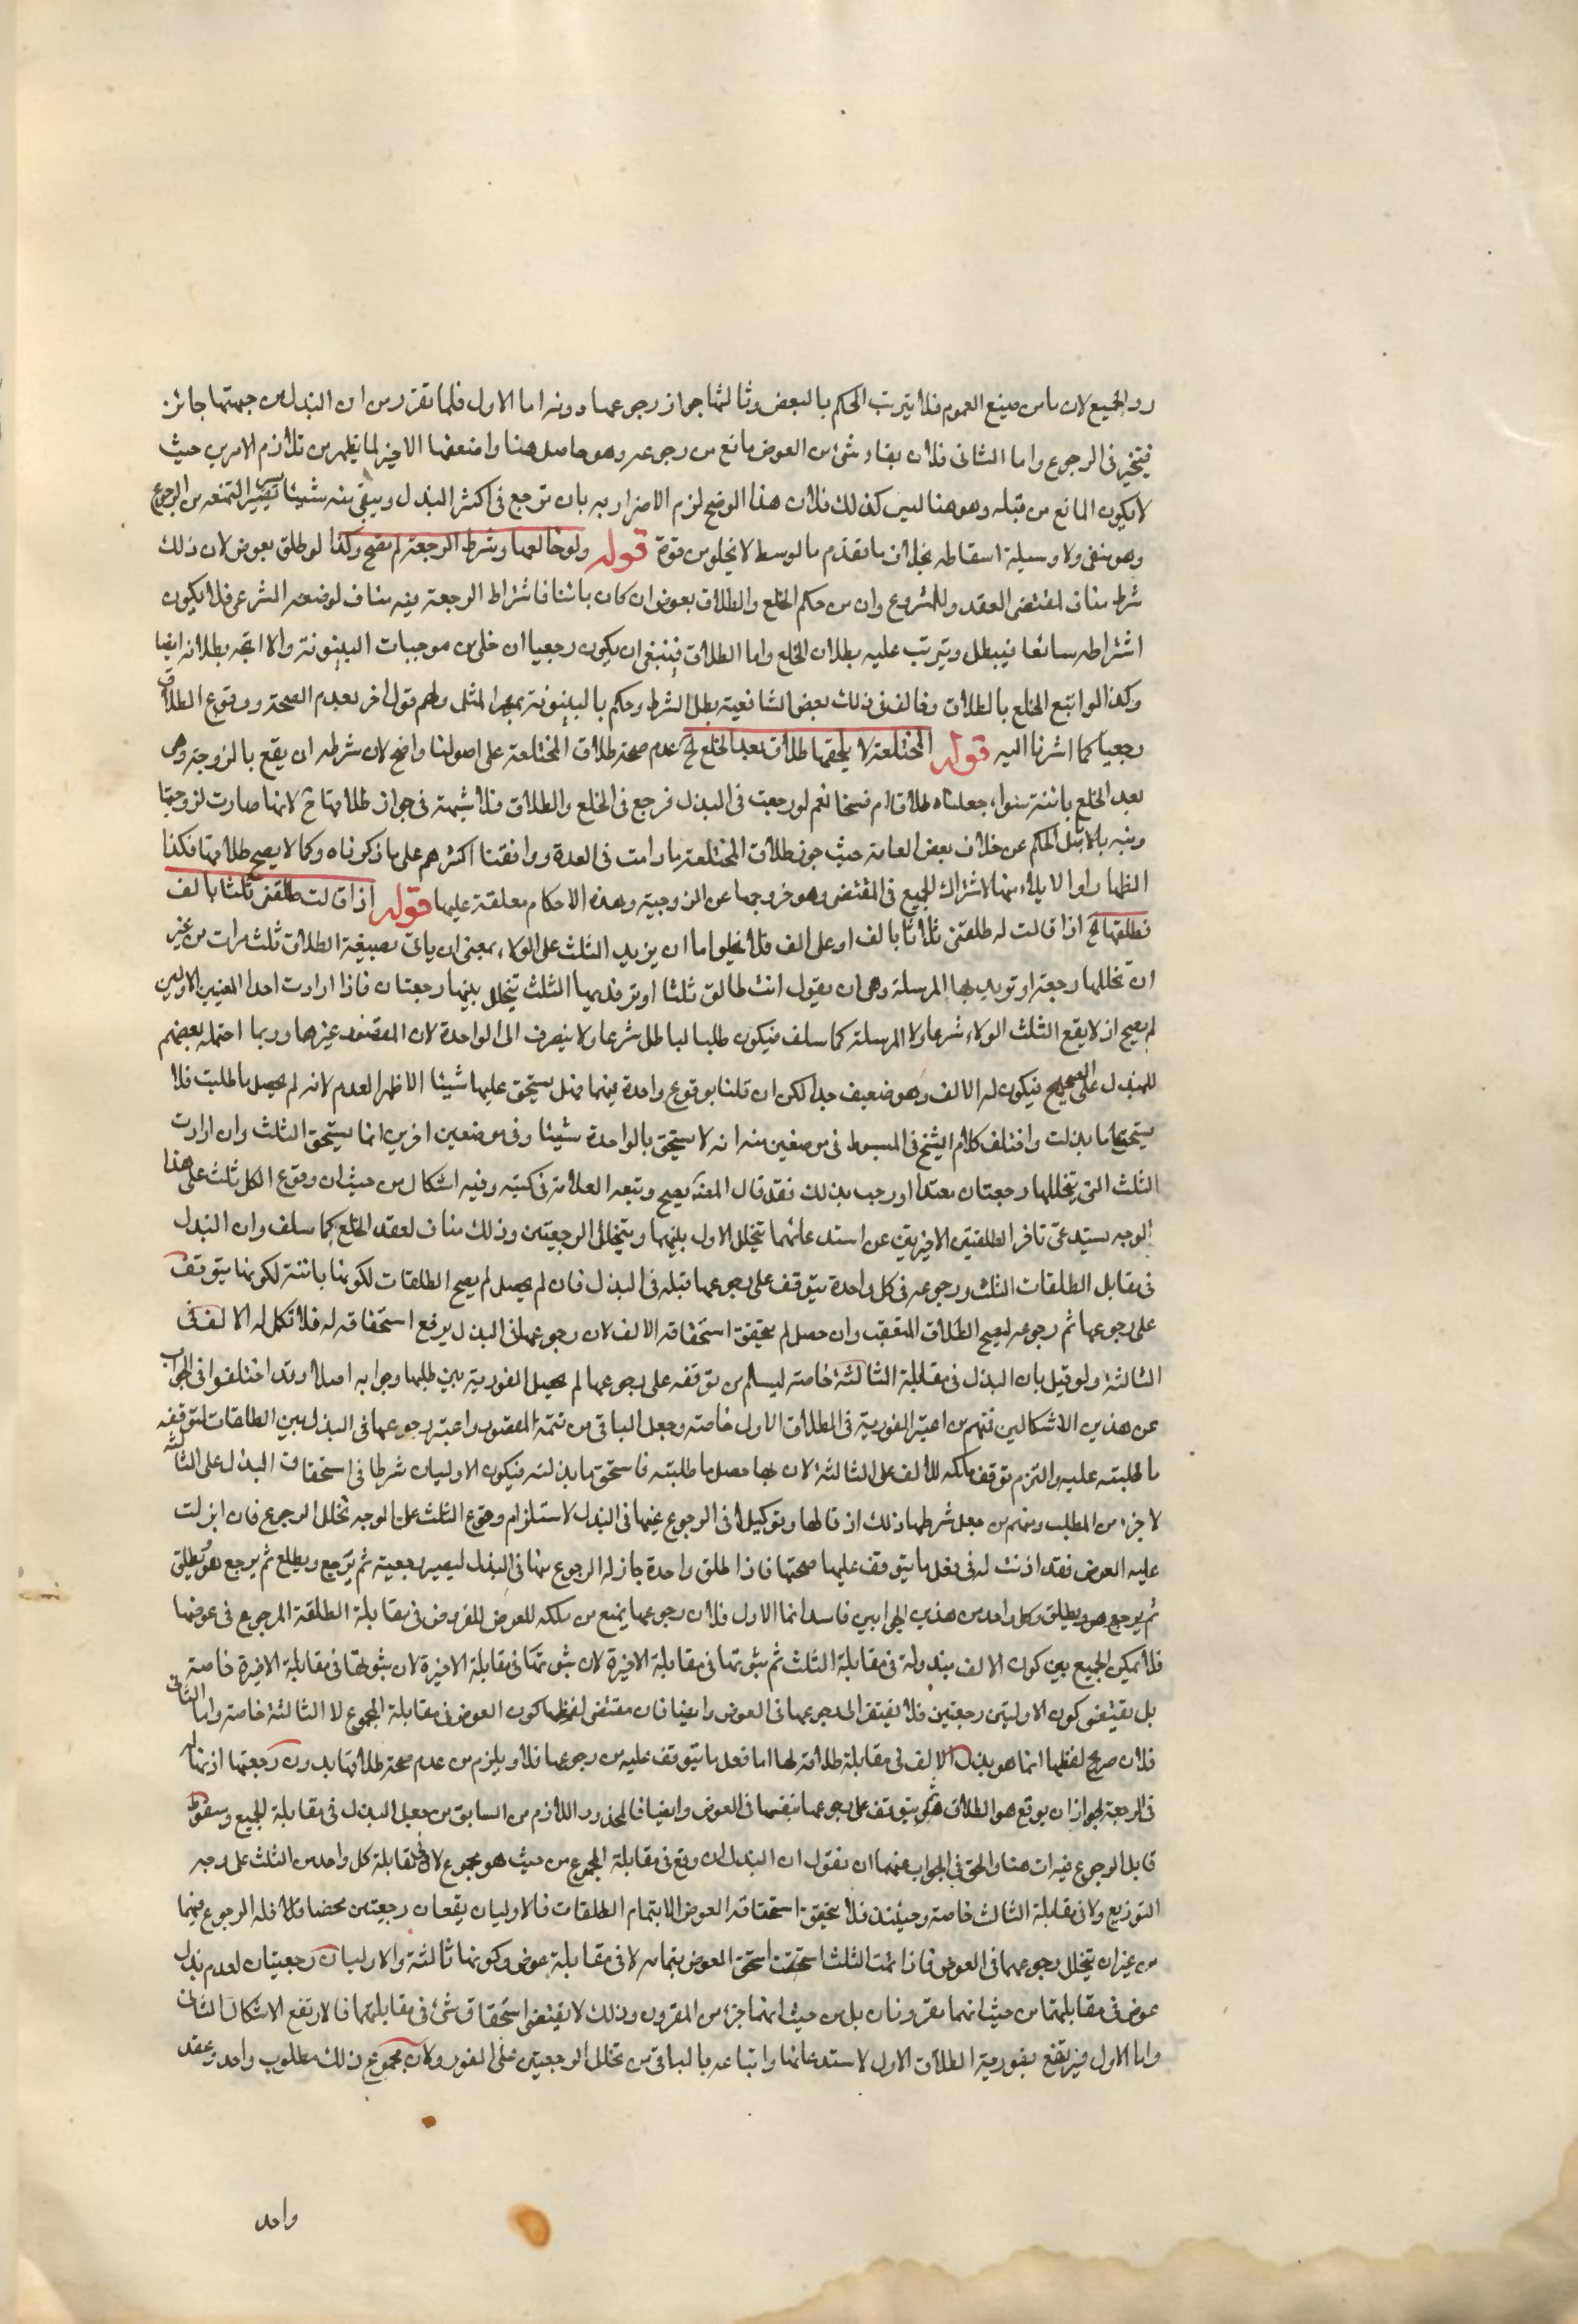 رد الجميع لان ما من صيغ العموم فلا يترتب الحكم بالبعض وثالثها جواز رجوعها دونه اما الاول فلما تقرر من ان البذل من جهتها جائز
فيتخير فى الرجوع واما الثانى فلان بقاء شئ من العوض مانع من رجوعه وهو حاصل هنا واضعفها الاخير لما يظهر من تلازم الامرين حيث
لا يكون المانع من قبله وهو هنا ليس كذلك فلان هذا لو صح لزم الاضرار به بان ترجع فى اكثر البذل ويبقى منه شيئا يسير التمنعه من الرجوع
وهو منفى ولا وسيلة اسقاطه بخلاف ما تقدم مالوسط لا يخلو من قوة قوله ولو خالعها وشرط الرجعة لم يصح وكذا لو طلق بعوض لان ذلك
شرط مناف لمقتضى العقد وللمشروع وان من حكم الخلع والطلاق بعوض ان كان بائنا فاشتراط الرجعة فيه مناف لوضعه الشرعى فلا يكون
اشتراطه سائغا فيبطل ويترتب عليه بطلان الخلع واما الطلاق فينبغى ان يكون رجعيا ان خلى من موجبات البينونة والا اتجه بطلانه ايضا
وكذا لو اتبع الخلع بالطلاق وخالف فى ذلك بعض الشافعية بطل الشرط وحكم بالبينونة بمهر المثل ولهم قول اخر بعدم الصحة ووقوع الطلاق
رجعيا كما اشرنا اليه قوله المختلعة لا يلحقها طلاق بعد الخلع لخ عدم صحة طلاق المختلعة على اصولنا واضح لان شرطه ان يقع بالزوجة وهى
بعد الخلع بائنة سواء جعلناه طلاقا ام فسخا نعم لو رجعت فى البذل فرجع فى الخلع والطلاق فلا شبهة فى جواز طلاقها ح لانها صارت لزوجيتها
ونبه بالاصل الحكم عن خلاف بعض العامة حيث جوز طلاق المختلعة ما دامت فى العدة ووافقنا اكثرهم على ما ذكرناه وكما لا يصح طلاقها فكذا
الظهار او الايلاء منها لاشتراك الجميع فى المقتضى وهو خروجها عن الزوجية وهذه الاحكام معلقة عليها قوله اذا قالت طلقنى ثلثا بالف
فطلقها لخ اذا قالت له طلقنى ثلاثا بالف او على الف فلا يخلو اما ان يزيد الثلث على الولاء بمعنى ان ياتى بصيغة الطلاق ثلث مرات من غير
ان تخللها رجعة او تريد بها المرسلة وهى ان يقول انت طالق ثلثا او تريد بها الثلث تتخلل بينها رجعتان فاذا ارادت احد المعنيين الاولين
لم يصح اذ لا يقع الثلث الولاء شرعا ولا المرسلة كما سلف فيكون طلبا لباطل شرعا ولا ينصرف الى الواحدة لان المقصود غيرها وربما احتمله بعضهم
للبذل على الصحيح فيكون له الالف وهو ضعيف جدا لكن ان قلنا بوقوع واحدة منها فهل يستحق عليها شيئا الاظهر العدم لانه لم يحصل ما طلبت فلا
يستحق ما بذلت واختلف كلام الشيخ فى المبسوط فى موضعين منه انه لا يستحق بالواحدة شيئا وفى موضعين اخرين انما يستحق الثلث وان ارادت
الثلث التى يتخللها رجعتان بعقد اوجب بذلك فقد قال المص يصح وتبعه العلامة فى كتبه وفيه اشكال من حيث ان وقوع الكل ثلث على هذا
الوجه يستدعى تاخر الطلقتين الاخيرتين عن استدعائهما بتخلل الاول بينهما ويتخلل الرجعتين وذلك مناف لعقد الخلع كما سلف وان البذل
فى مقابل الطلقات الثلث ورجوعه فى كل واحدة يتوقف على رجوعها قبله فى البذل فان لم يحصل لم يصح الطلقات لكونها بائنة لكونها يتوقف
على رجوعها ثم رجوعه ليصح الطلاق المتعقب وان حصل لم يتحقق استحقاقه الالف لان رجوعها فى البذل يرفع استحقاقه له فلا تكمل له الالف فى
الثالثة ولو قيل بان البذل فى مقابلة الثالثة خاصة ليسلم من توقفه على رجوعها لم يحصل الفورية بين طلبها وجوابه اصلا وقد اختلفوا فى الجواب
عن هذين الاشكالين فمنهم من اعتبر الفورية فى الطلاق الاول خاصة وجعل الباقى من تتمة المقصود واعتبر رجوعها فى البذل بين الطلقات لتوقف
ما طلبته عليه والتزم توقف ملكه للالف على الثالثة لان بها حصل ما طلبته فاستحق ما بذلته فيكون الاوليان شرطا فى استحقاق البذل على الثالثة
لا جزء من المطلب ومنهم من جعل شرطها ذلك اذ قالها وتوكيلا فى الرجوع عنها فى البذل لاستلزام وقوع الثلث على الوجه تخلل الرجوع فان انزلت
عليه العوض فقد اذنت له فى فعل ما يتوقف عليها صحتها فاذا طلق واحدة جاز له الرجوع منها فى البذل ليصير رجعية ثم يرجع ويطلع ثم يرجع هو ويطلق
ثم يرجع هو ويطلق وكل واحد من هذين الجوابين فاسد اما الاول فلان رجوعها يمنع من ملكه للعوض المفروض فى مقابلة الطلقة المرجوع فى عوضها
فلا يمكن الجمع بين كون الالف مبذولة فى مقابلة الثلث ثم ثبوتها فى مقابلة الاخيرة لان ثبوتها فى مقابلة الاخيرة لان ثبوتها فى مقابلة الاخيرة خاصة
بل يقتضى كون الاوليتين رجعيتين فلا يفتقر الى رجوعها فى العوض وايضا فان مقتضى لفظها كون العوض فى مقابلة المجموع لا الثالثة خاصة واما الثانى
فلان صريح لفظها انما هو بذل الالف فى مقابلة طلاقه لها اما فعل ما يتوقف عليه من رجوعها فلا ويلزم من عدم صحة طلاقها بدون رجعتها اذنها له
فى الرجعة لجواز ان يوقع هو الطلاق يتوقف على رجوعها بنفسها فى العوض وايضا فالمحذور اللازم من السابق من جعل البذل فى مقابلة الجميع وسقوط
قابل الرجوع فيه ات هنا والحق فى الجواب عنهما ان نقول ان البذل ان وقع فى مقابلة المجموع من حيث هو مجموع لا فى مقابلة كل واحد من الثلث على وجه
التوزيع ولا فى مقابلة الثالث خاصة وحينئذ فلا يتحقق استحقاقه العوض الا بتمام الطلقات فالاوليان يقعان رجعيتين محضا فلا فله الرجوع فيهما
من غير ان يتخلل رجوعها فى العوض فاذا تمت الثلث استحق العوض بتمامه لا فى مقابلة عوض وكونها ثالثة والاوليان رجعيتان لعدم بذل
عوض فى مقابلتهما من حيث انهما مقرونان بل من حيث انهما جزء من المقرون وذلك لا يقتضى استحقاق شئ فى مقابلتهما فارتفع الاشكال الثانى
واما الاول فيرتفع بفورية الطلاق الاول لاستدعائها واتباعه بالباقى من تخلل الرجعتين على الفور ولان مجموع ذلك مطلوب واحد وعقد
واحد